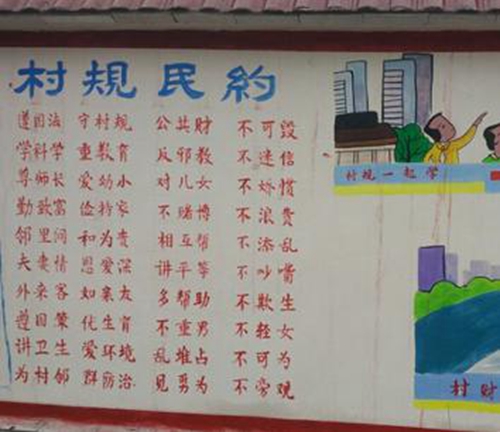 村規民約
遵国法 守村规 公共财 不可毁
学科学 重教育 反邪教 不迷信
尊师长 爱幼小 对儿女 不娇惯
勤致富 俭持家 不赌博 不浪费
邻里间 和为贵 相互帮 不添乱
夫妻情 恩爱深 讲平等 不吵嘴
外来客 如亲友 多帮助 不欺生
遵国策 优生育 不重男 不轻女
讲卫生 爱环境 乱堆占 不可为
为村邻 群防治 见勇为 不旁观
村规一起学
村财